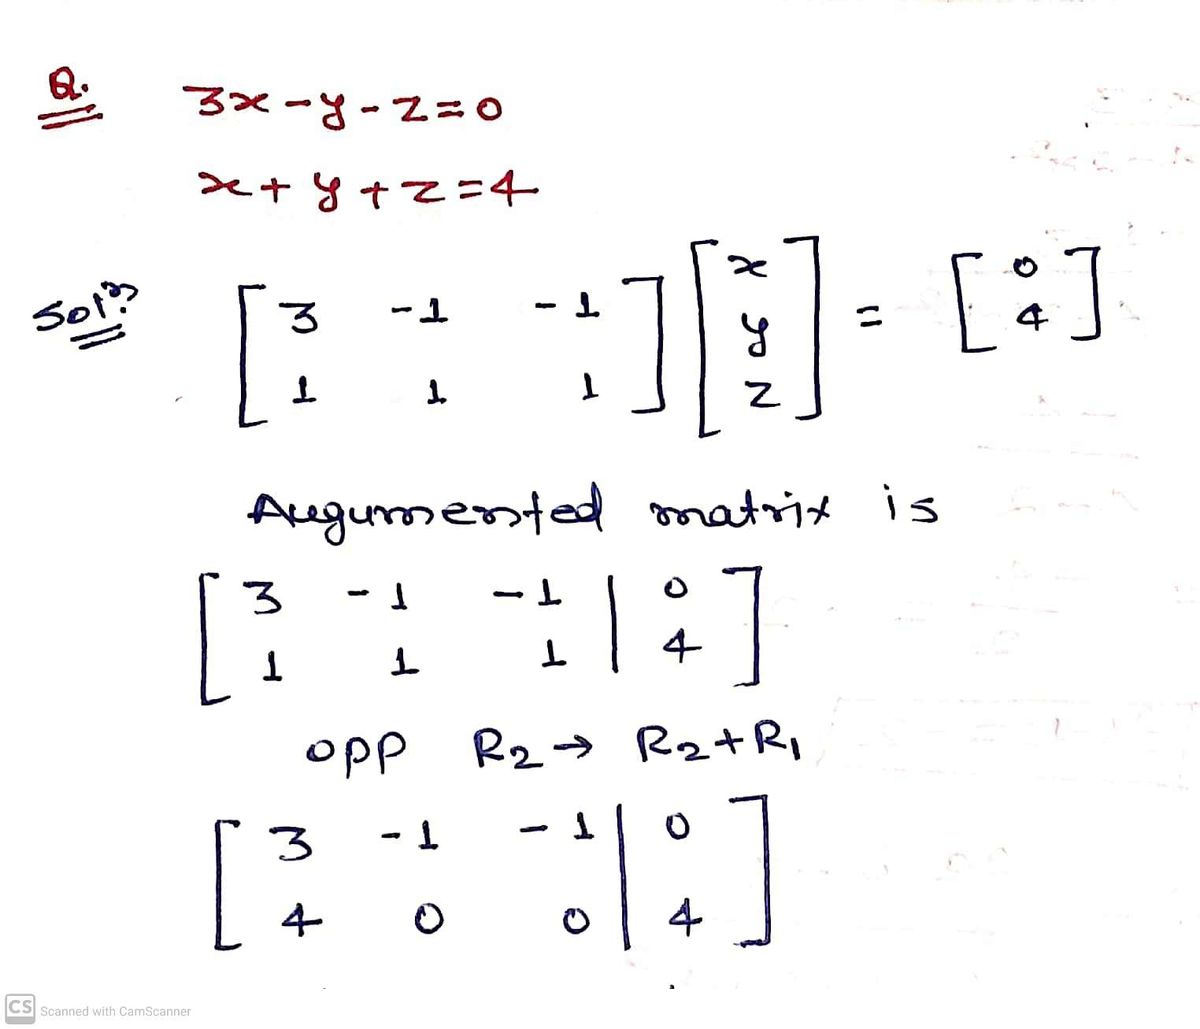 Q. 3x - y - z = 0
x + y + z = 4
Solⁿ: [ 3 -1 -1 ] [ x ] = [ 0 ]
[ 1 1 1 ] [ y ] [ 4 ]
[ z ]
Augumented matrix is
[ 3 -1 -1 | 0 ]
[ 1 1 1 | 4 ]
opp R2 → R2 + R1
[ 3 -1 -1 | 0 ]
[ 4 0 0 | 4 ]
CS Scanned with CamScanner